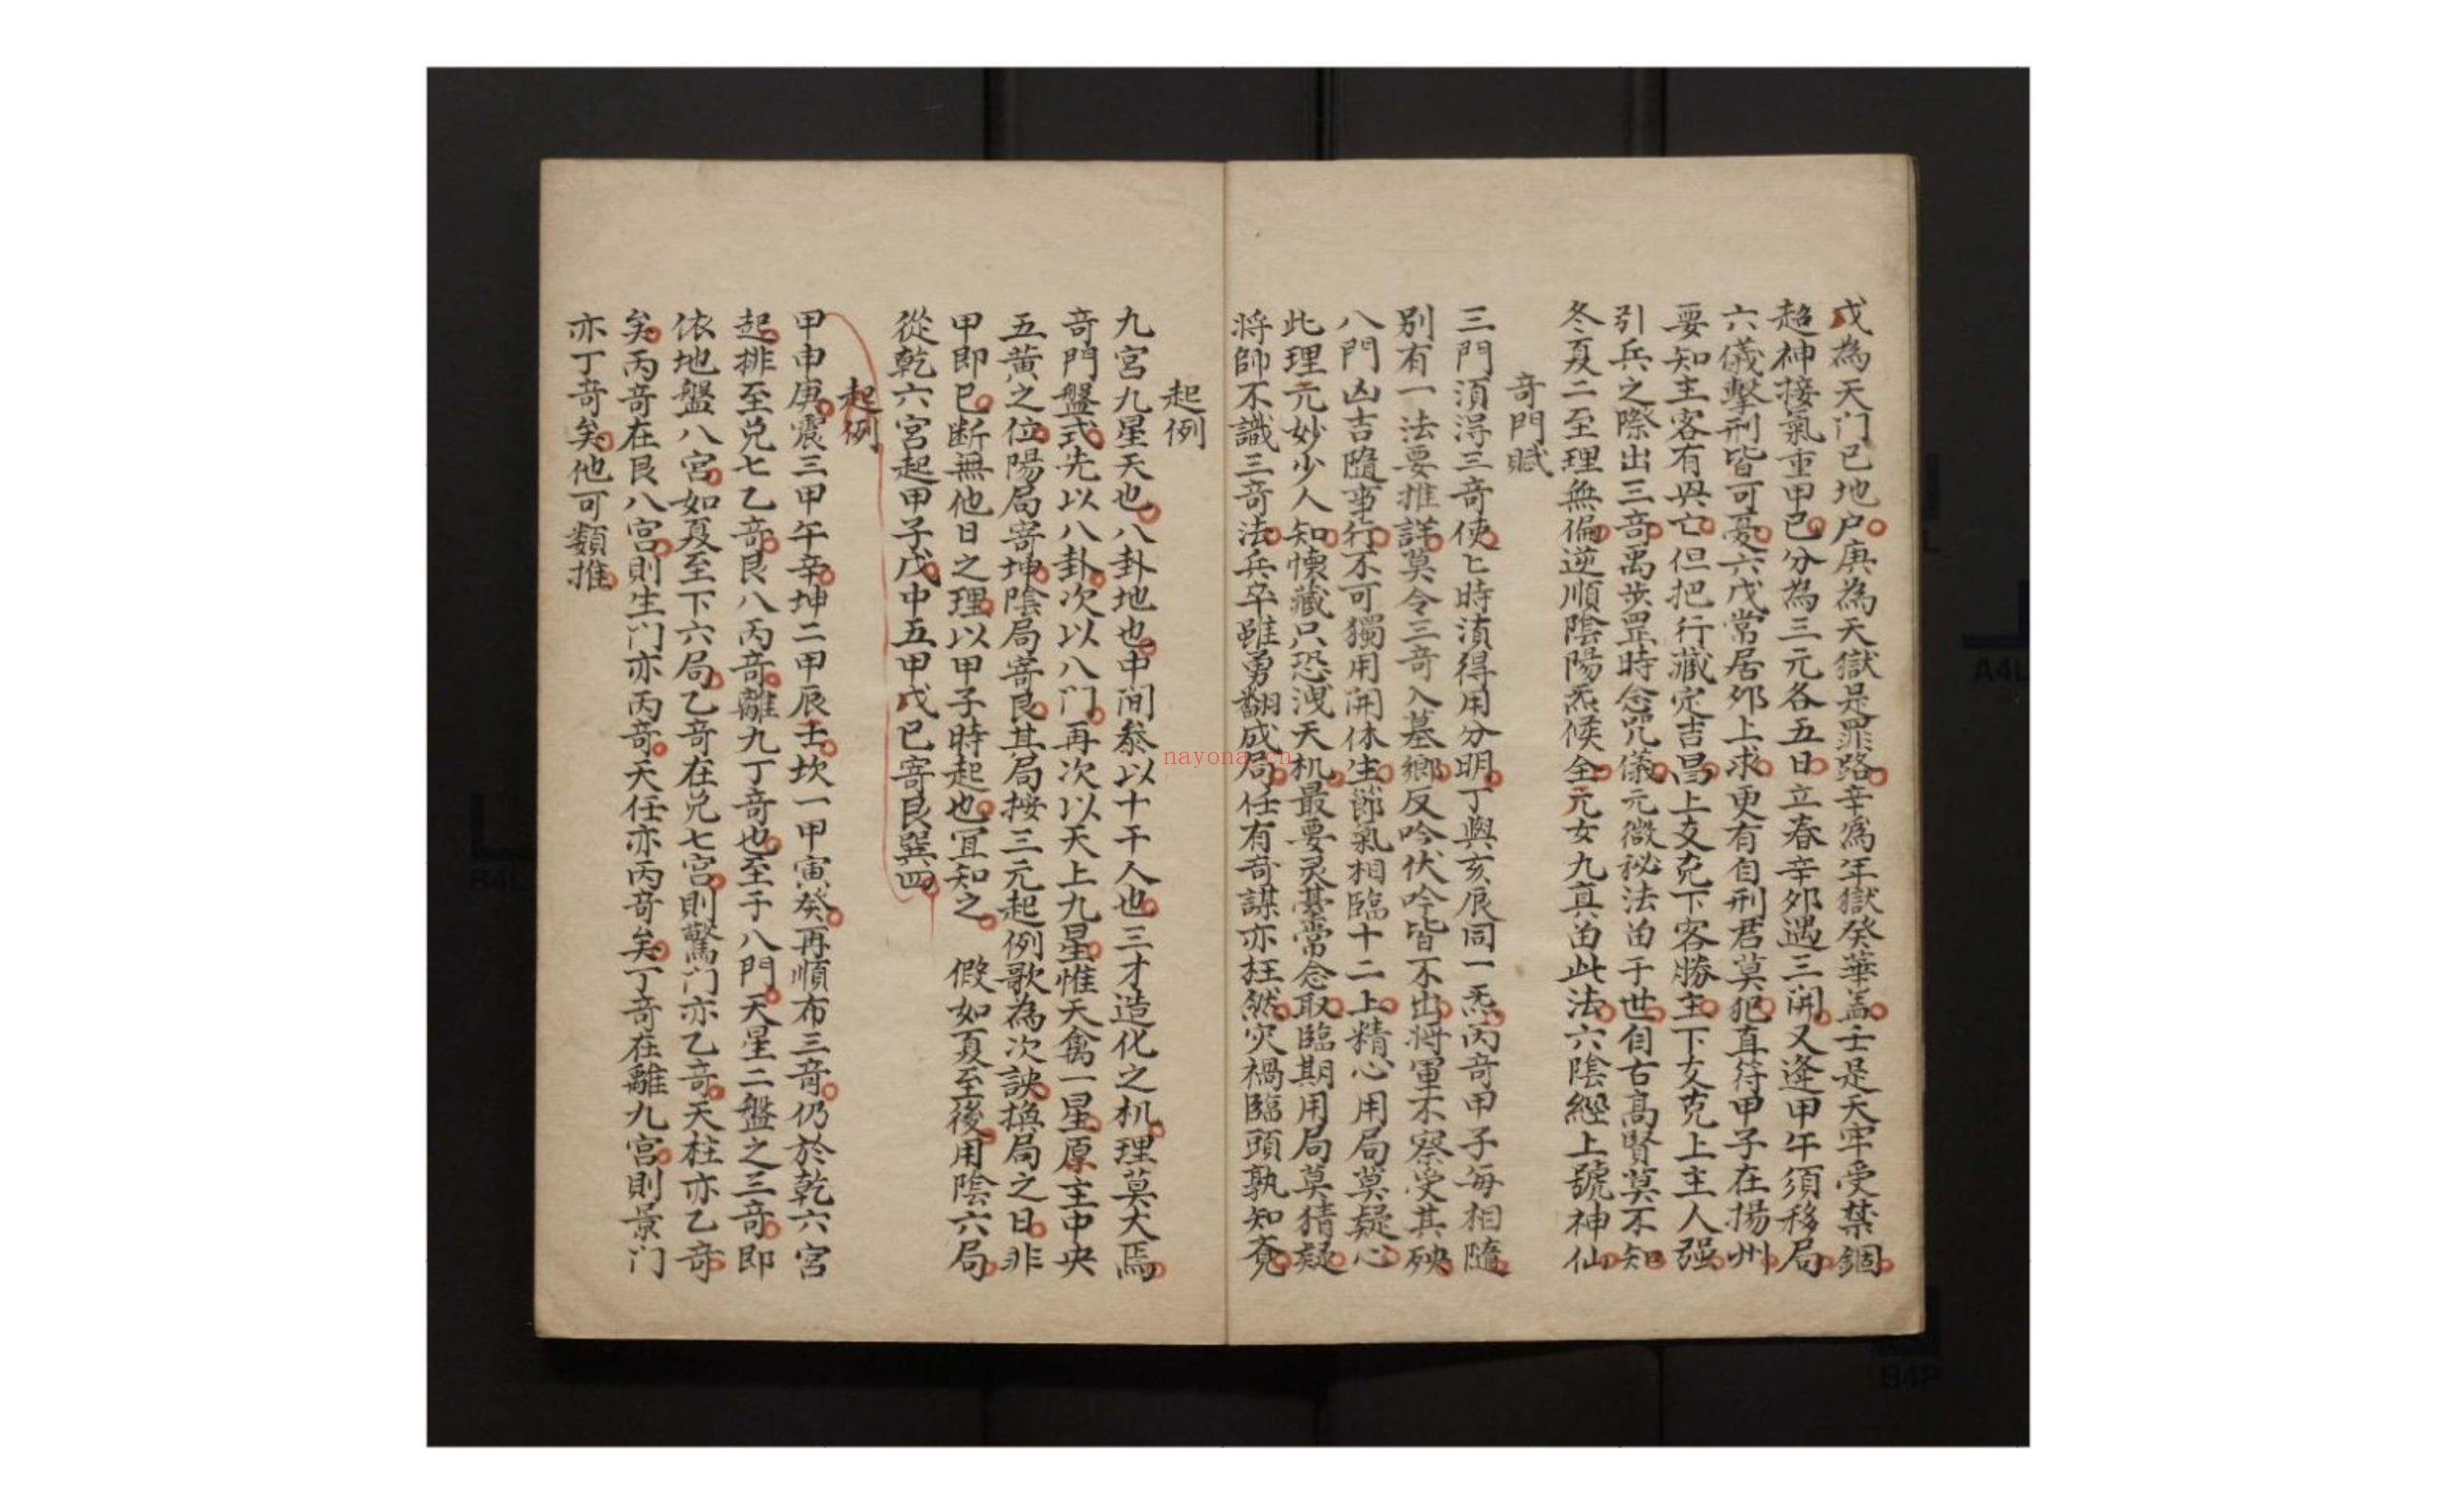 戊為天门己地户庚為天獄是罪路辛為年獄癸華盖壬是天牢受禁錮
超神接氣重甲己分為三元各五日立春辛夘遇三開又逢甲午須移局
六儀擊刑皆可憂六戊常居夘上求更有自刑君莫犯直符甲子在揚州
要知主客有與亡但把行藏定吉昌上爻克下客勝主下爻克上主人强
引兵之際出三竒禹步罡時念咒儀元微秘法由于世自古高賢莫不知
冬夏二至理無偏逆順陰陽炁候全元女九真留此法六陰經上號神仙
竒門賦
三門須淂三竒使匕時湏得用分明丁與亥辰同一炁丙竒甲子每相隨
别有一法要推詳莫令三竒入墓鄉反吟伏吟皆不出将軍不察受其殃
八門凶吉隨事行不可獨用開休生節氣相臨十二上精心用局莫疑心
此理元妙少人知懷藏只恐洩天机最要灵臺常念取臨期用局莫猜疑
将帥不識三竒法兵卒雖勇翻成局任有竒謀亦枉然灾禍臨頭孰知覔
起例
九宫九星天也八卦地也中间叅以十干人也三才造化之机理莫大焉
竒門盤式先以八卦次以八门再次以天上九星惟天禽一星原主中央
五黄之位陽局寄坤陰局寄艮其局按三元起例歌為次訣換局之日非
甲即己断無他日之理以甲子時起也冝知之 假如夏至後用陰六局
從乾六宫起甲子戊中五甲戌己寄艮巽四
起例
甲申庚震三甲午辛坤二甲辰壬坎一甲寅癸再順布三竒仍於乾六宫
起排至兑七乙竒艮八丙竒離九丁竒也至于八門天星二盤之三竒即
依地盤八宫如夏至下六局乙竒在兑七宫則驚门亦乙竒天柱亦乙竒
矣丙竒在艮八宫則生门亦丙竒天任亦丙竒矣丁竒在離九宫則景门
亦丁竒矣他可類推
nayona.cn